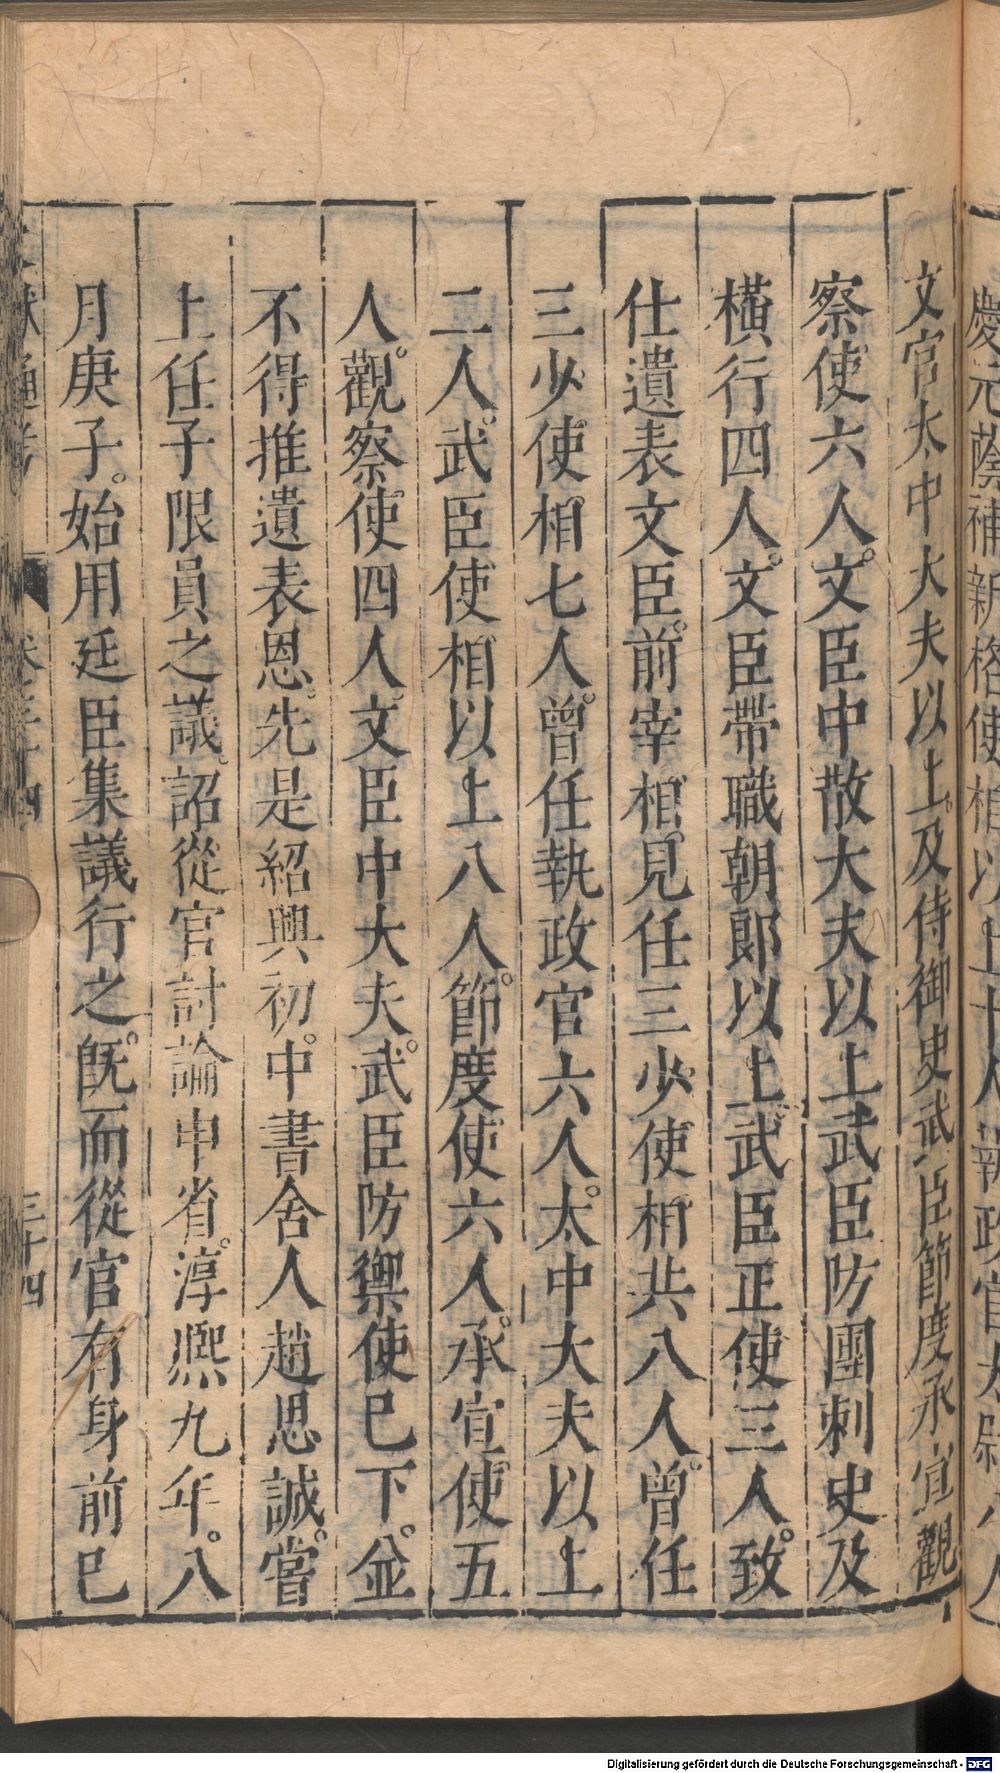 慶元蔭補新格使相以上十人執政官太尉八人
文官太中大夫以上及侍御史武臣節度承宣觀
察使六人文臣中散大夫以上武臣防團刺史及
橫行四人文臣帶職朝郎以上武臣正使三人致
仕遺表文臣前宰相見任三少使相共八人曾任
三少使相七人曾任執政官六人太中大夫以上
二人武臣使相以上八人節度使六人承宣使五
人觀察使四人文臣中大夫武臣防禦使已下並
不得推遺表恩先是紹興初中書舍人趙思誠嘗
上任子限員之議詔從官討論申省淳熙九年八
月庚子始用廷臣集議行之旣而從官有身前已
文獻通考 卷三十四 三十四
Digitalisierung gefördert durch die Deutsche Forschungsgemeinschaft - DFG